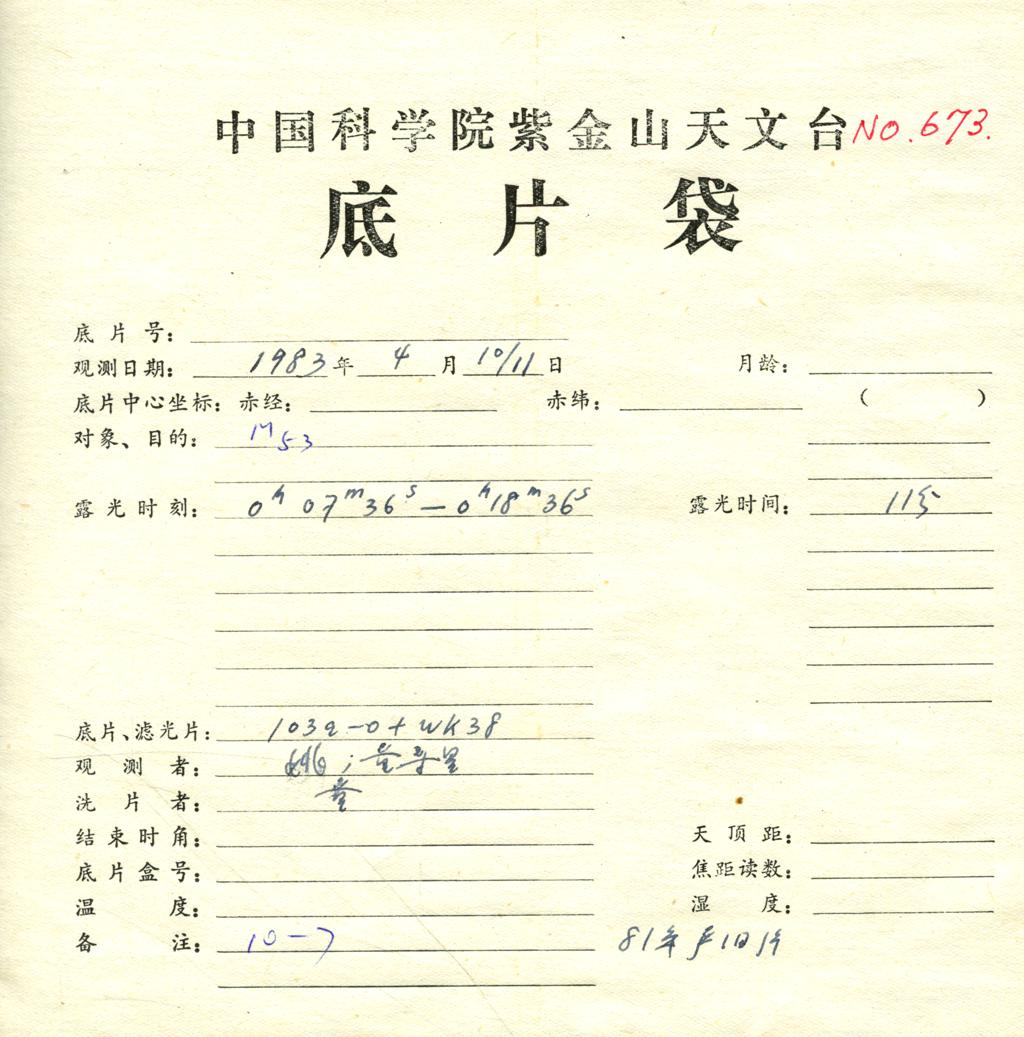 中国科学院紫金山天文台 NO.673.
底片袋
底片号：
观测日期： 1983年 4月 10/11日 月龄：
底片中心坐标：赤经： 赤纬： （ ）
对象、目的： M53
露光时刻： 0h 07m 36s — 0h 18m 36s 露光时间： 11分
底片、滤光片： 103a-0+WK38
观测者：
洗片者：
结束时角： 天顶距：
底片盒号： 焦距读数：
温度： 湿度：
备注： 10-7 81年 1日片